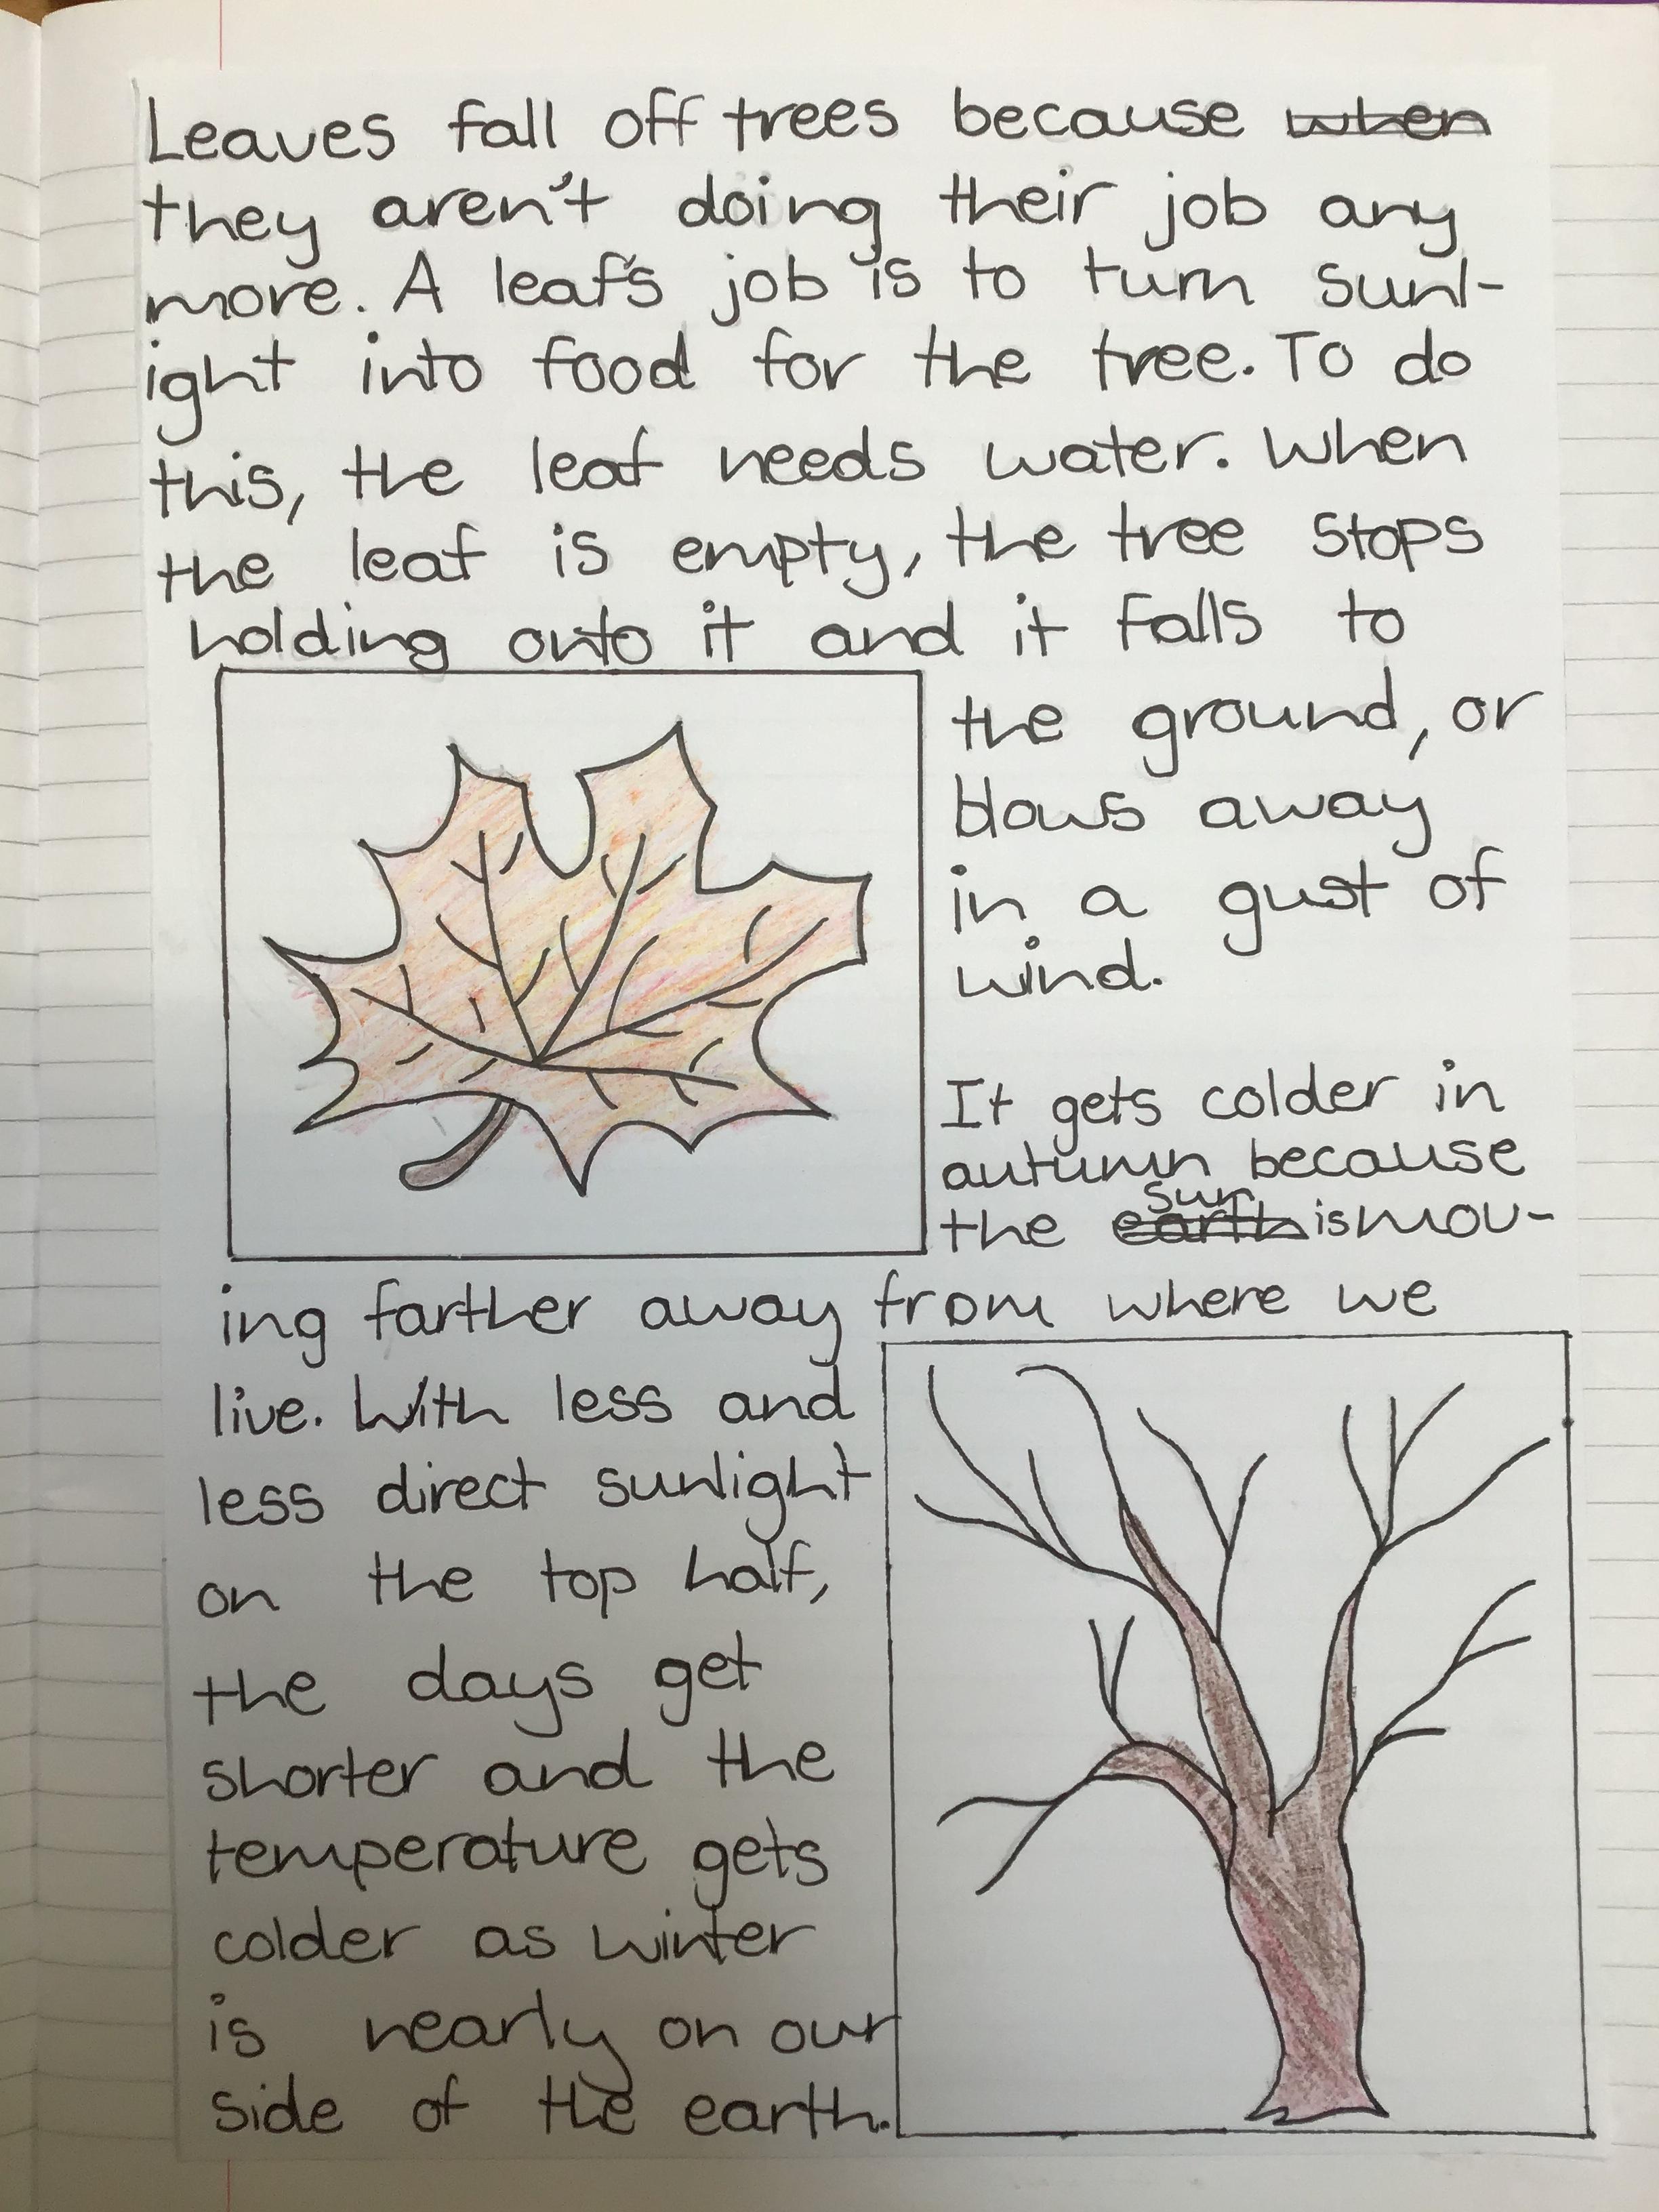 Leaves fall off trees because when
they aren't doing their job any
more. A leaf's job is to turn sunl-
ight into food for the tree. To do
this, the leaf needs water. When
the leaf is empty, the tree stops
holding onto it and it falls to
the ground, or
blows away
in a gust of
wind.
It gets colder in
autumn because
the earth sun is mov-
ing farther away from where we
live. With less and
less direct sunlight
on the top half,
the days get
shorter and the
temperature gets
colder as winter
is nearly on our
side of the earth.